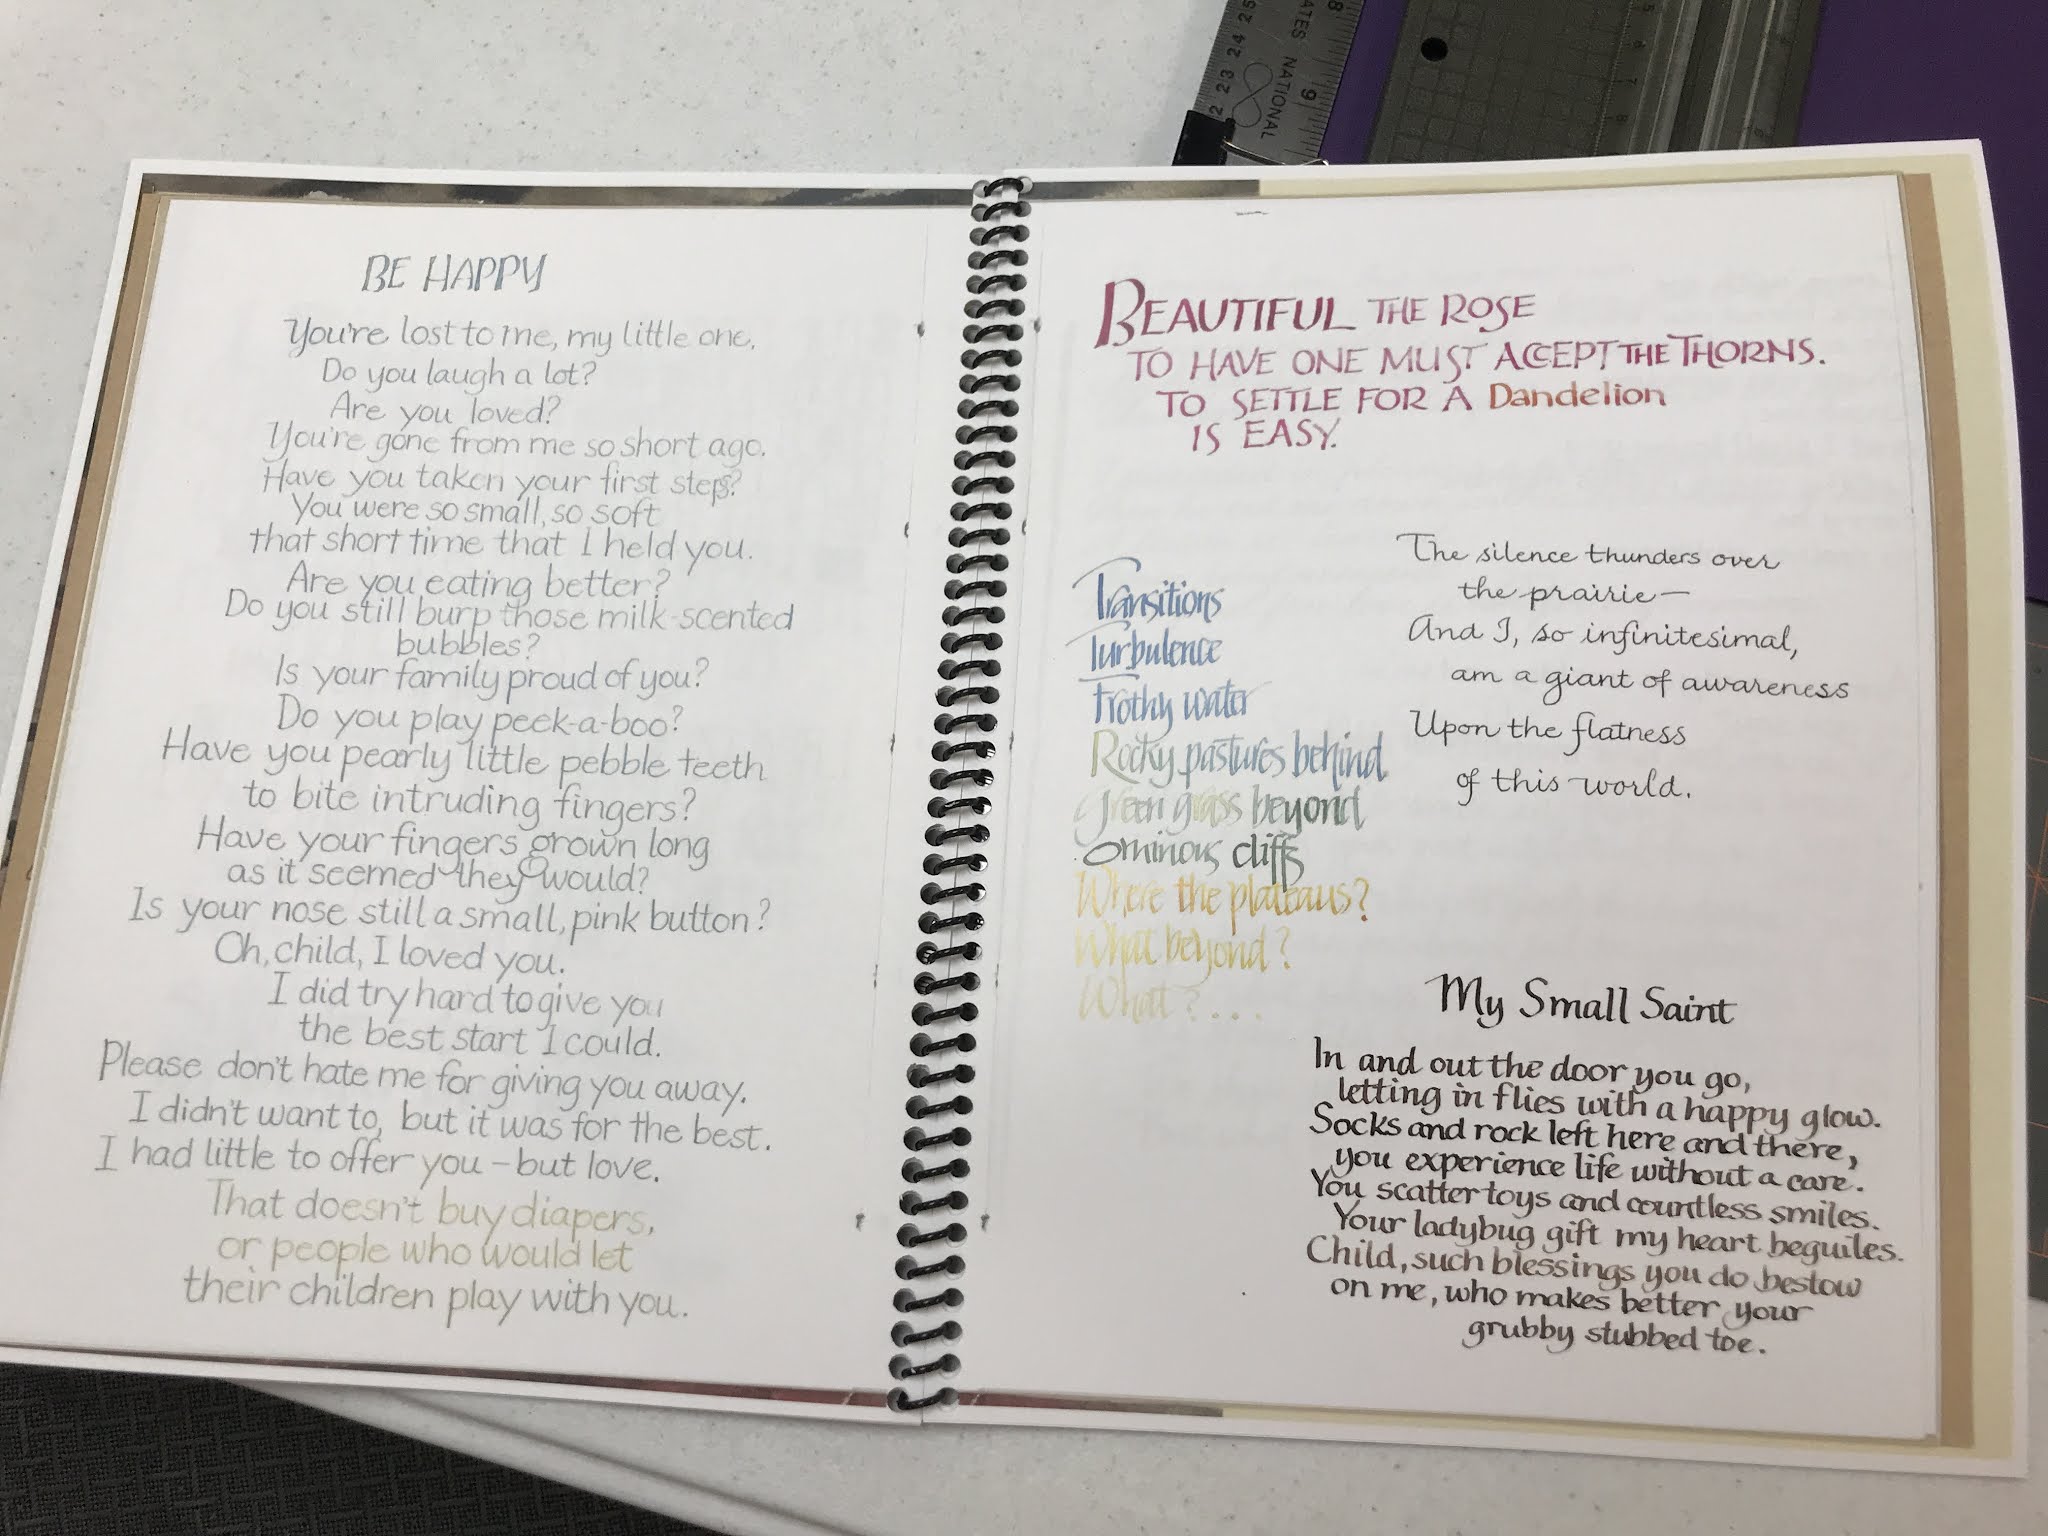 BE HAPPY
You're lost to me, my little one,
Do you laugh a lot?
Are you loved?
You're gone from me so short ago.
Have you taken your first steps?
You were so small, so soft
that short time that I held you.
Are you eating better?
Do you still burp those milk-scented
bubbles?
Is your family proud of you?
Do you play peek-a-boo?
Have you pearly little pebble teeth
to bite intruding fingers?
Have your fingers grown long
as it seemed they would?
Is your nose still a small, pink button?
Oh, child, I loved you.
I did try hard to give you
the best start I could.
Please don't hate me for giving you away.
I didn't want to, but it was for the best.
I had little to offer you – but love.
That doesn't buy diapers,
or people who would let
their children play with you.
BEAUTIFUL THE ROSE
TO HAVE ONE MUST ACCEPT THE THORNS.
TO SETTLE FOR A Dandelion
IS EASY.
Transitions
Turbulence
Frothy water
Rocky pastures behind
Green grass beyond
Ominous cliffs
Where the plateaus?
What beyond?
What? . . .
The silence thunders over
the prairie —
And I, so infinitesimal,
am a giant of awareness
Upon the flatness
of this world.
My Small Saint
In and out the door you go,
letting in flies with a happy glow.
Socks and rock left here and there,
you experience life without a care.
You scatter toys and countless smiles.
Your ladybug gift my heart beguiles.
Child, such blessings you do bestow
on me, who makes better your
grubby stubbed toe.
NATIONAL
22 23 24 25
9